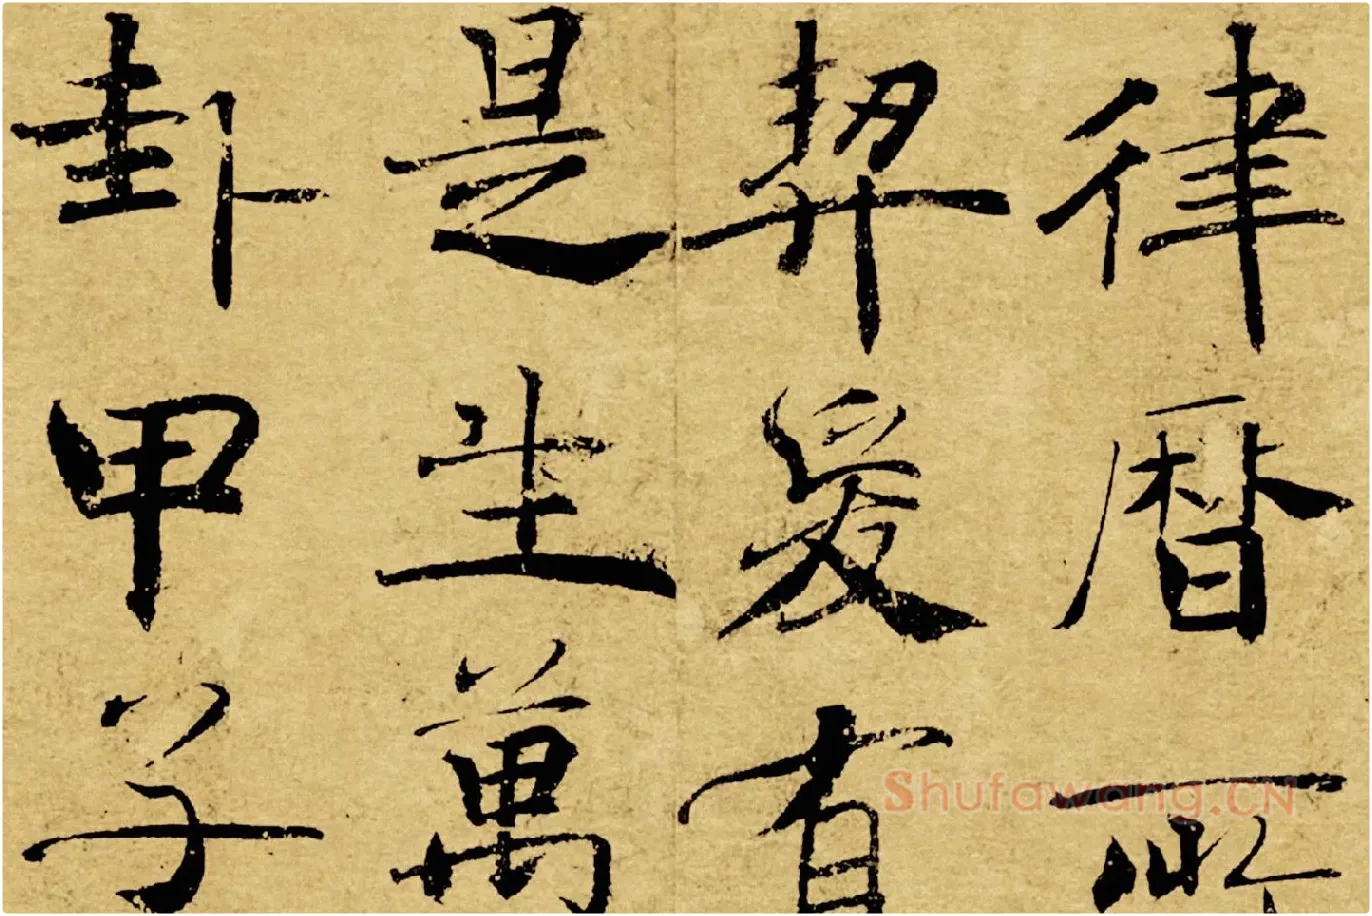 律曆所
契爰有
是生萬
卦甲子
Shufawang.CN